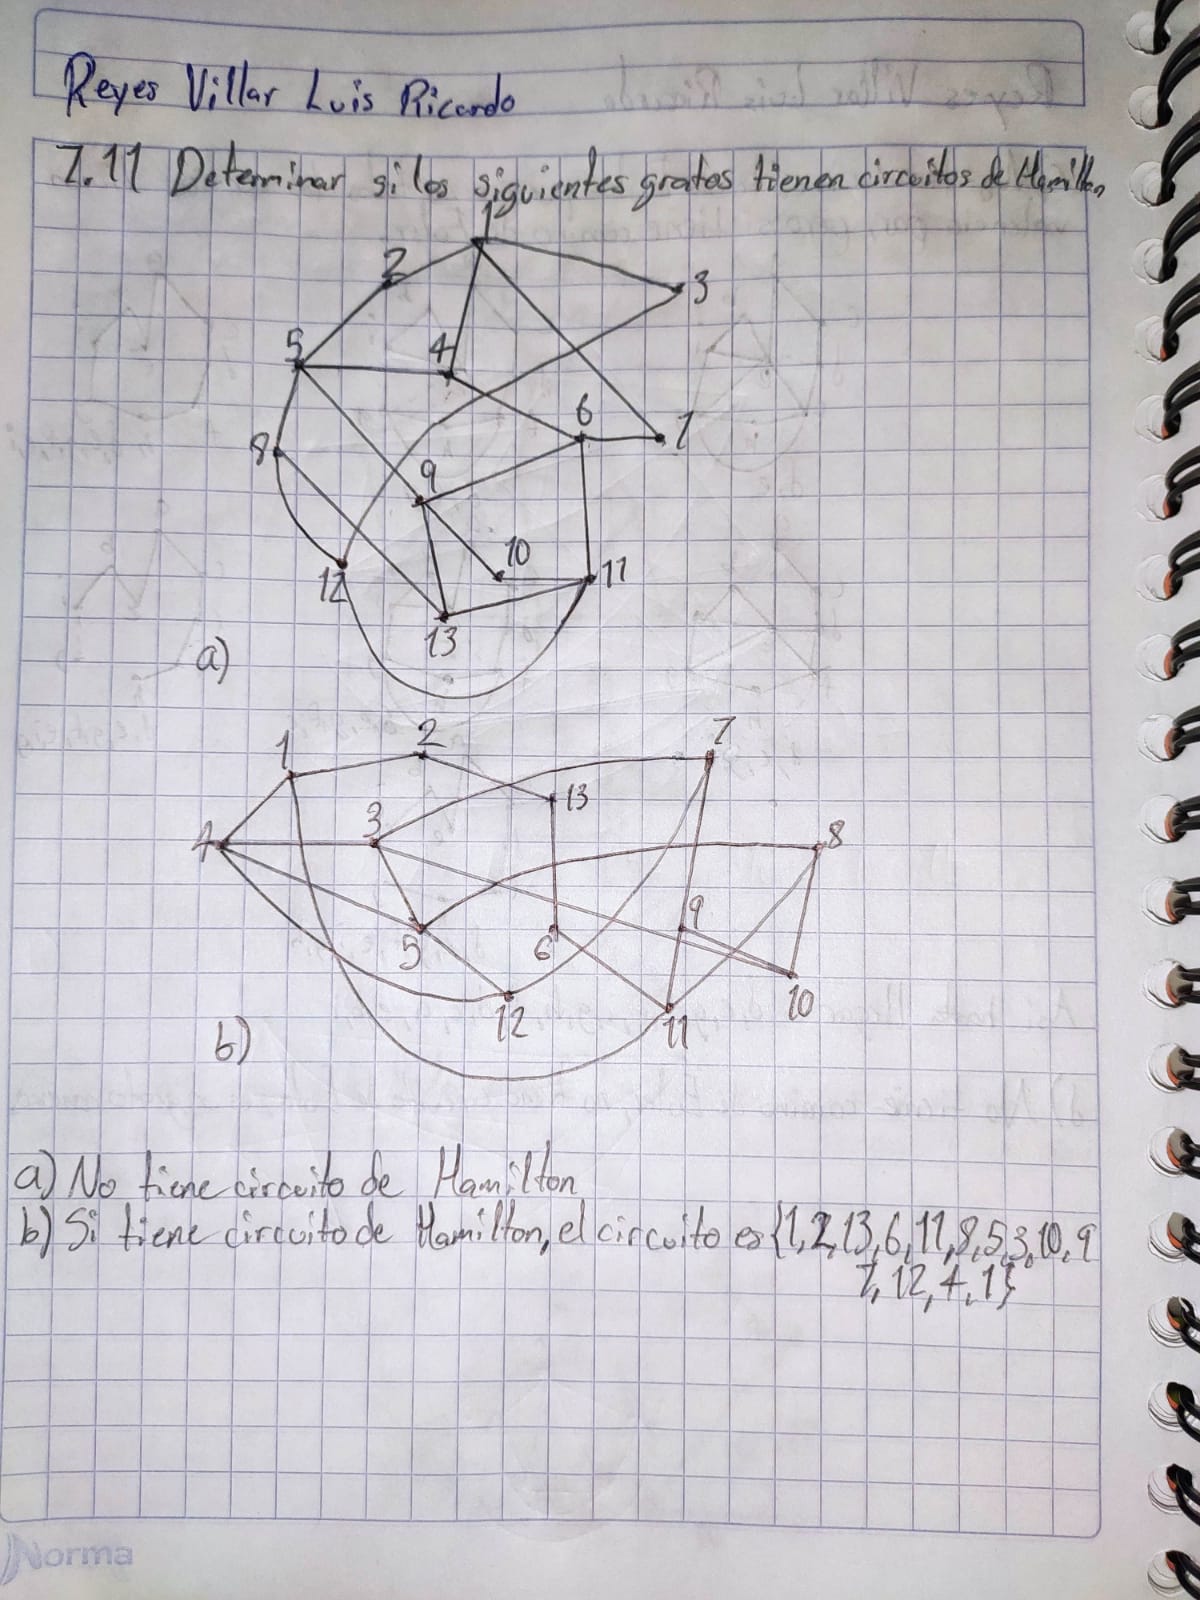 Reyes Villar Luis Ricardo
7.11 Determinar si los siguientes grafos tienen circuitos de Hamilton
1
2
3
5
4
6
7
8
9
10
12
11
13
a)
1
2
7
13
3
8
4
9
5
6
10
12
11
b)
a) No tiene circuito de Hamilton
b) Si tiene circuito de Hamilton, el circuito es {1,2,13,6,11,8,5,3,10,9
7,12,4,1}
Norma